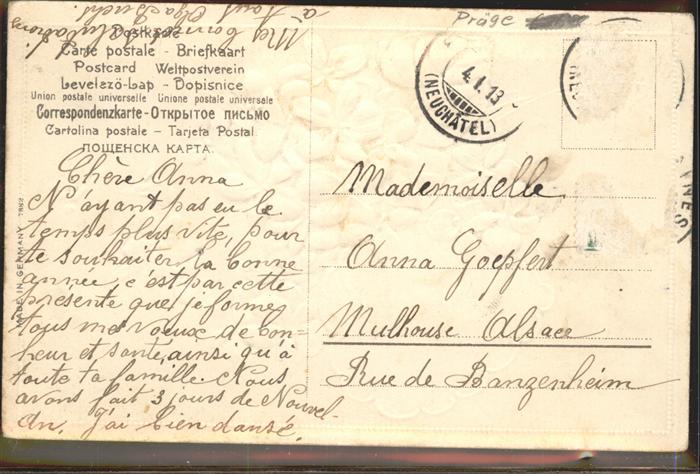 Präge
Postkarte
Carte postale - Briefkaart
Postcard Weltpostverein
Levelező-Lap - Dopisnice
Union postale universelle Unione postale universale
Correspondenzkarte - Открытое письмо
Cartolina postale - Tarjeta Postal
ПОЩЕНСКА КАРТА.
4.1.13
(NEUCHÂTEL)
Chère Anna
N'ayant pas eu le
temps plus vite, pour
te souhaiter la bonne
année, c'est par cette
présente que je formes
tous me voeux de bon-
heur et santé, ainsi qu'à
toute ta famille. Nous
avons fait 3 jours de Nouvel-
An. J'ai bien dansé.
Mes bonnes
à tous
Mademoiselle
Anna Goepfert
Mulhouse Alsace
Rue de Banzenheim
MADE IN GERMANY 7882